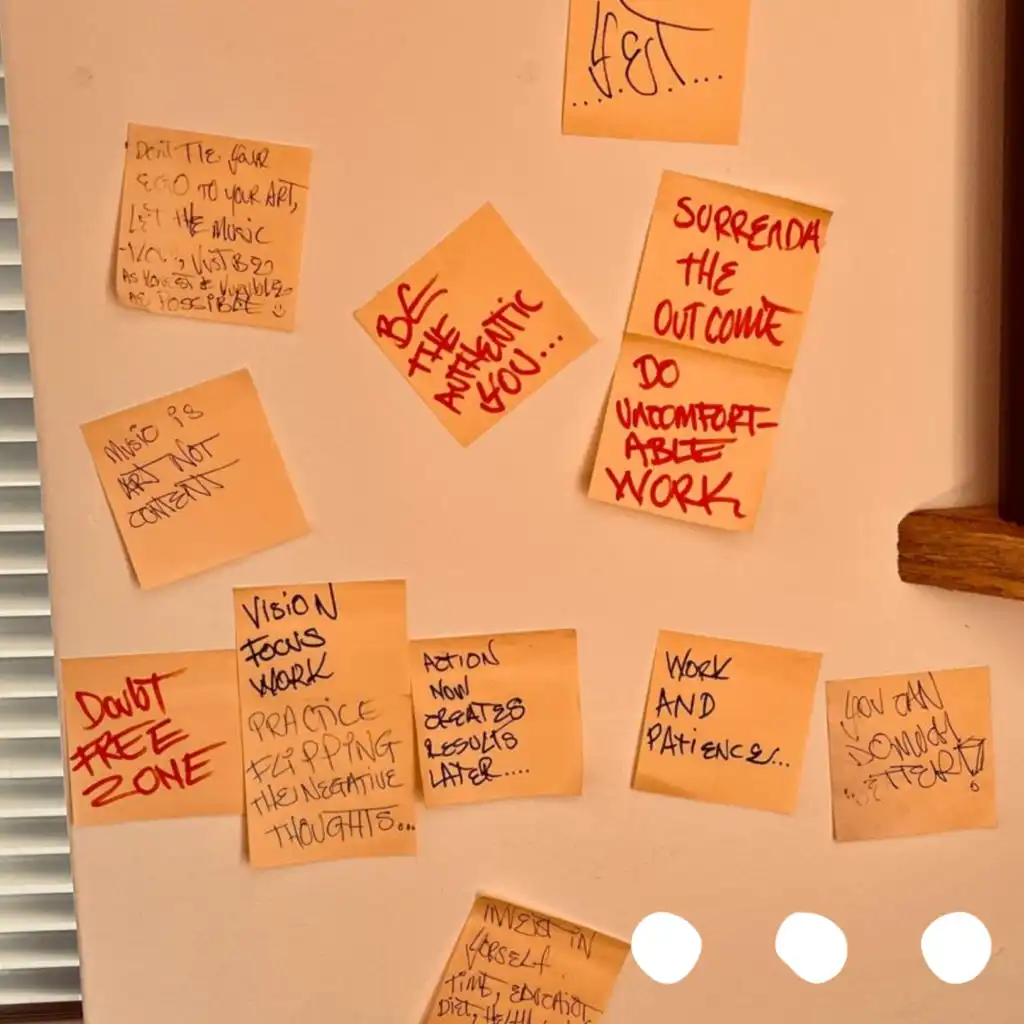 YET...
DON'T TIE YOUR
EGO TO YOUR ART,
LET THE MUSIC
JUST BE
AS HONEST &
AS POSSIBLE
BE
THE
AUTHENTIC
YOU...
SURRENDA
THE
OUTCOME
DO
UNCOMFORT-
ABLE
WORK
MUSIC IS
ART NOT
CONTENT
DOUBT
FREE
ZONE
VISION
FOCUS
WORK
PRACTICE
FLIPPING
THE NEGATIVE
THOUGHTS...
ACTION
NOW
CREATES
RESULTS
LATER....
WORK
AND
PATIENCE...
YOU CAN
DO MUCH
INVEST IN
YORSELF.
TIME,
DIET, HEALTH